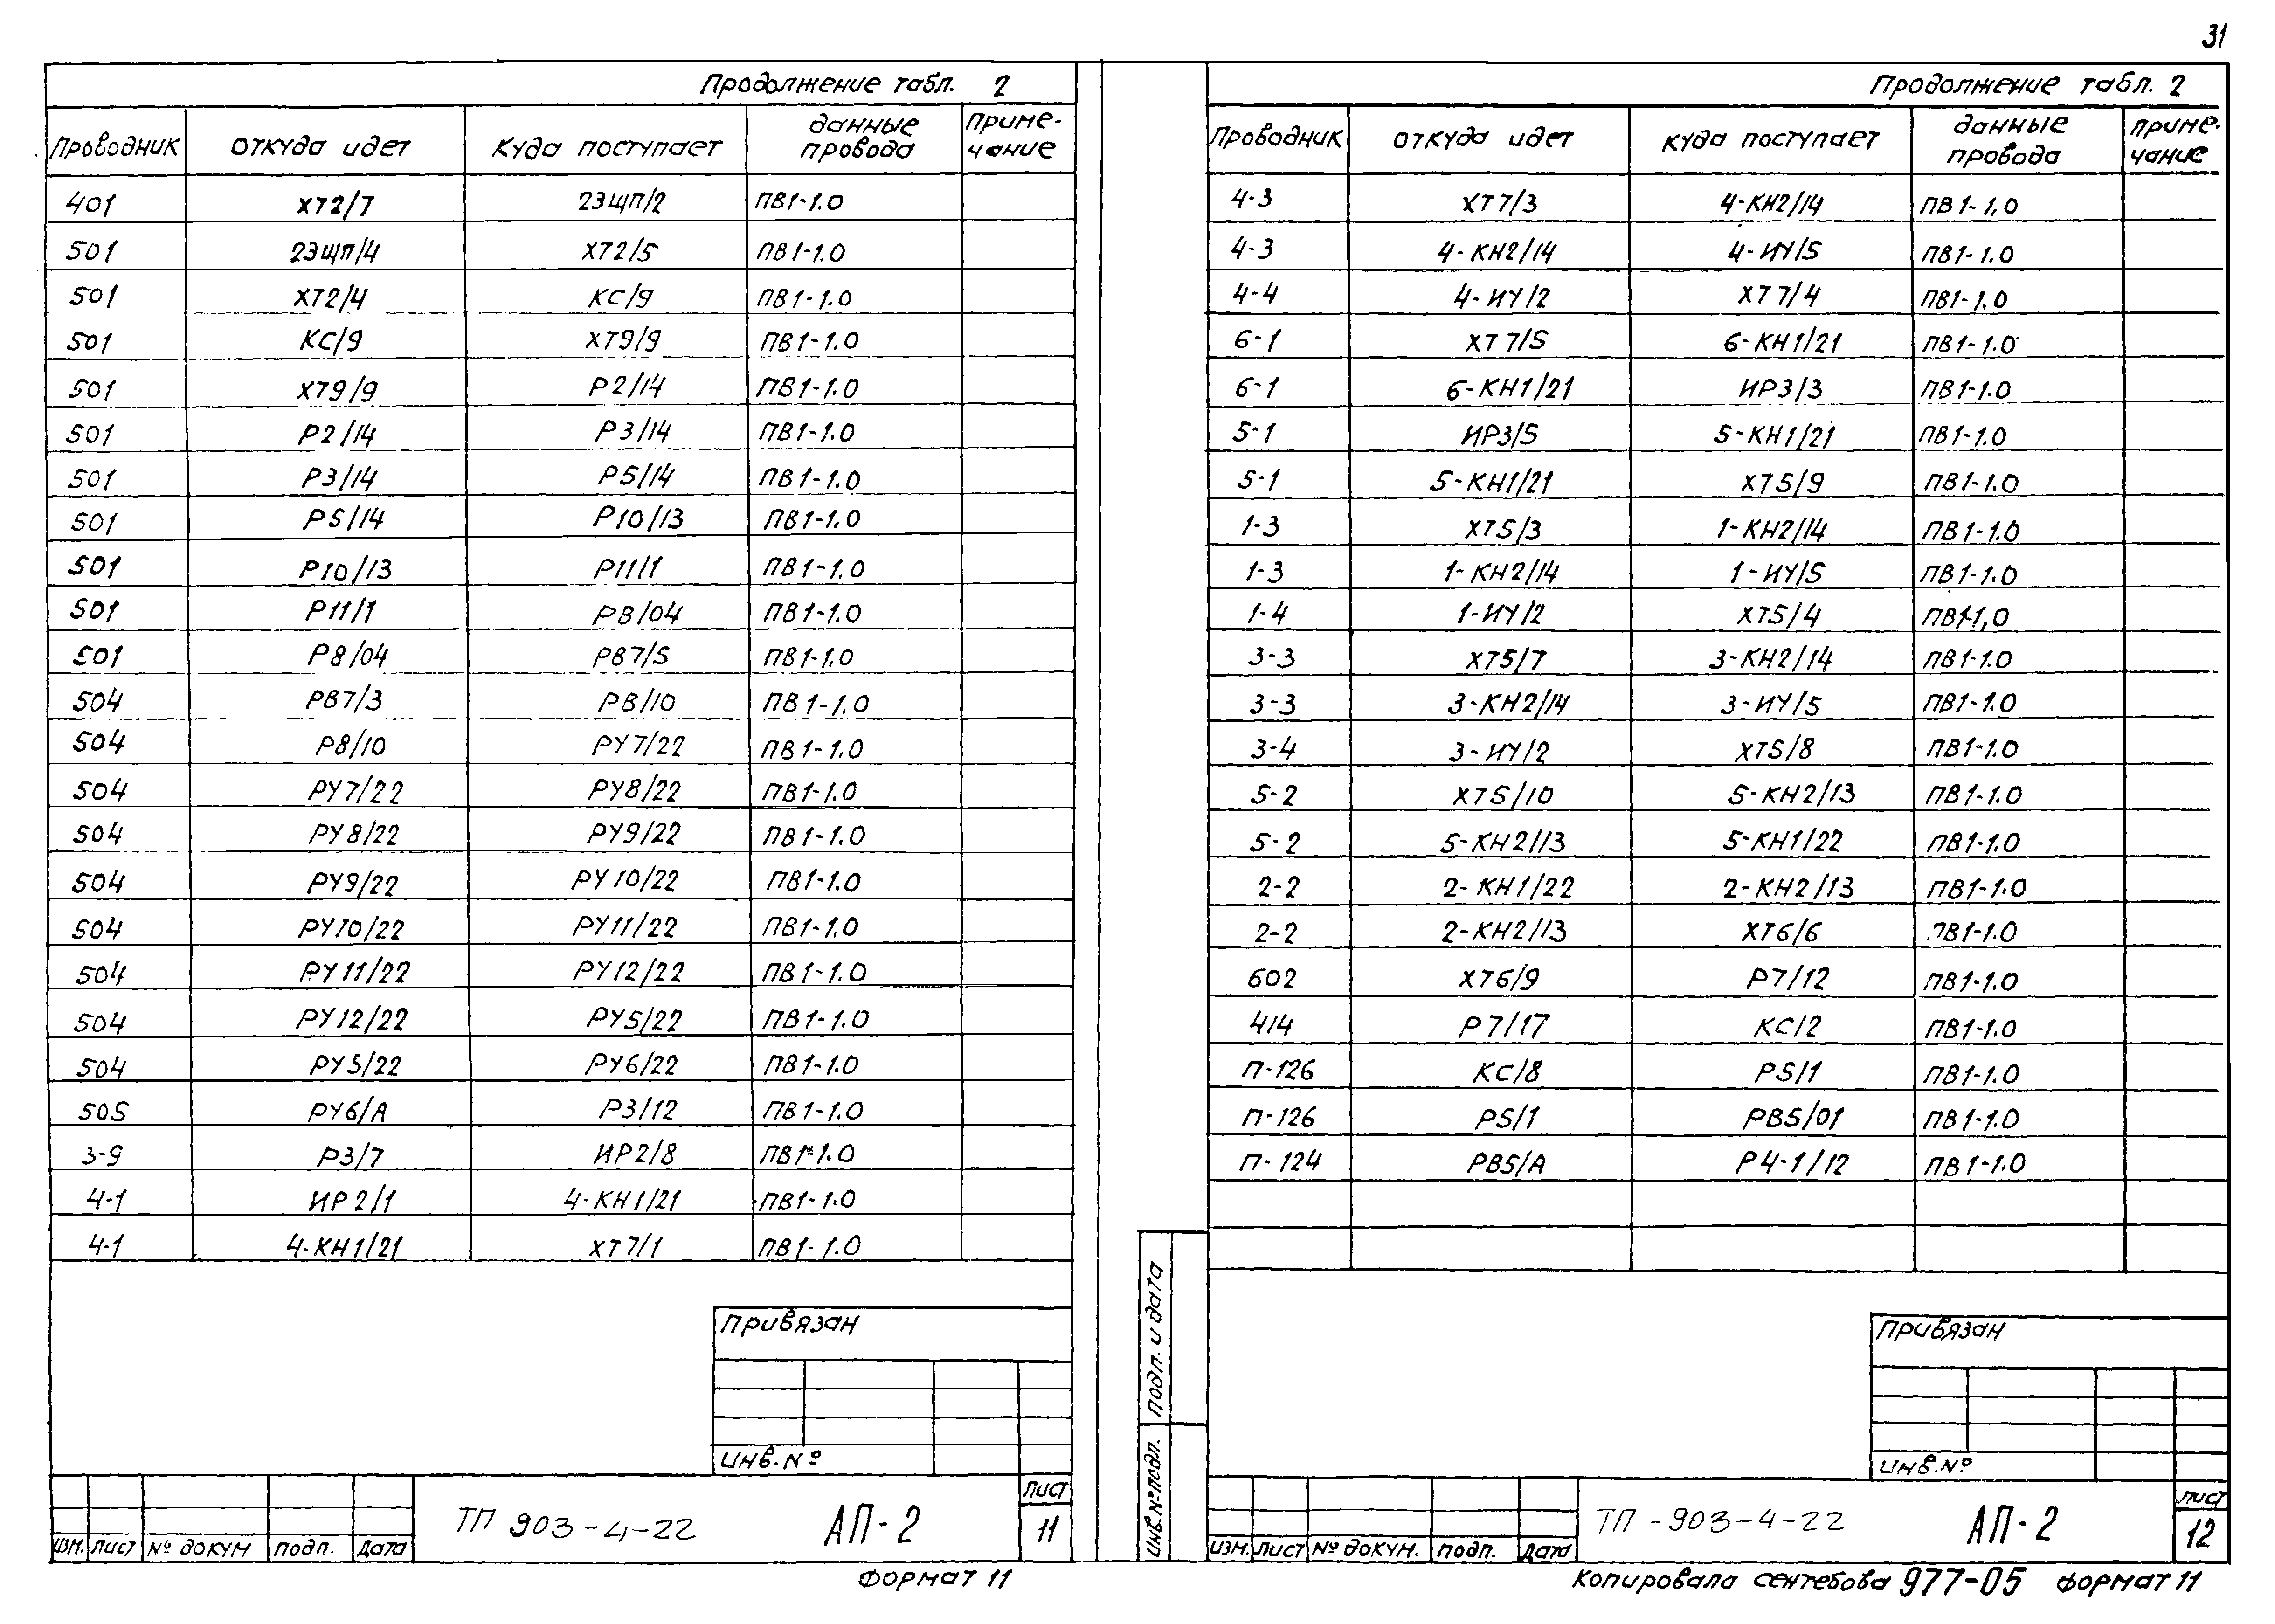 31
Продолжение табл. 2
Проводник откуда идет куда поступает данные провода Приме-чание
401 ХТ2/7 2ЭЩП/2 ПВ1-1.0
501 2ЭЩП/4 ХТ2/5 ПВ1-1.0
501 ХТ2/4 КС/9 ПВ1-1.0
501 КС/9 ХТ9/9 ПВ1-1.0
501 ХТ9/9 Р2/14 ПВ1-1.0
501 Р2/14 Р3/14 ПВ1-1.0
501 Р3/14 Р5/14 ПВ1-1.0
501 Р5/14 Р10/13 ПВ1-1.0
501 Р10/13 Р11/1 ПВ1-1.0
501 Р11/1 Р8/04 ПВ1-1.0
501 Р8/04 РВ7/5 ПВ1-1.0
504 РВ7/3 Р8/10 ПВ1-1.0
504 Р8/10 РУ7/22 ПВ1-1.0
504 РУ7/22 РУ8/22 ПВ1-1.0
504 РУ8/22 РУ9/22 ПВ1-1.0
504 РУ9/22 РУ10/22 ПВ1-1.0
504 РУ10/22 РУ11/22 ПВ1-1.0
504 РУ11/22 РУ12/22 ПВ1-1.0
504 РУ12/22 РУ5/22 ПВ1-1.0
504 РУ5/22 РУ6/22 ПВ1-1.0
505 РУ6/А Р3/12 ПВ1-1.0
3-9 Р3/7 ИР2/8 ПВ1-1.0
4-1 ИР2/1 4-КН1/21 ПВ1-1.0
4-1 4-КН1/21 ХТ7/1 ПВ1-1.0
Привязан
инв.№
изм. лист № докум подп. дата
ТП 903-4-22 АП-2
лист
11
Формат 11
Продолжение табл. 2
Проводник откуда идет куда поступает данные провода приме-чание
4-3 ХТ7/3 4-КН2/14 ПВ1-1,0
4-3 4-КН2/14 4-ИУ/5 ПВ1-1.0
4-4 4-ИУ/2 ХТ7/4 ПВ1-1.0
6-1 ХТ7/5 6-КН1/21 ПВ1-1.0
6-1 6-КН1/21 ИР3/3 ПВ1-1.0
5-1 ИР3/5 5-КН1/21 ПВ1-1.0
5-1 5-КН1/21 ХТ5/9 ПВ1-1.0
1-3 ХТ5/3 1-КН2/14 ПВ1-1.0
1-3 1-КН2/14 1-ИУ/5 ПВ1-1.0
1-4 1-ИУ/2 ХТ5/4 ПВ1-1,0
3-3 ХТ5/7 3-КН2/14 ПВ1-1.0
3-3 3-КН2/14 3-ИУ/5 ПВ1-1.0
3-4 3-ИУ/2 ХТ5/8 ПВ1-1.0
5-2 ХТ5/10 5-КН2/13 ПВ1-1.0
5-2 5-КН2/13 5-КН1/22 ПВ1-1.0
2-2 2-КН1/22 2-КН2/13 ПВ1-1.0
2-2 2-КН2/13 ХТ6/6 ПВ1-1.0
602 ХТ6/9 Р7/12 ПВ1-1.0
414 Р7/17 КС/2 ПВ1-1.0
П-126 КС/8 Р5/1 ПВ1-1.0
П-126 Р5/1 РВ5/01 ПВ1-1.0
П-124 РВ5/А Р4-1/12 ПВ1-1.0
Привязан
инв.№
Подп. и дата
инв.№ подл.
изм. лист № докум. подп. дата
ТП-903-4-22 АП-2
лист
12
Копировала сентебова 977-05 Формат 11